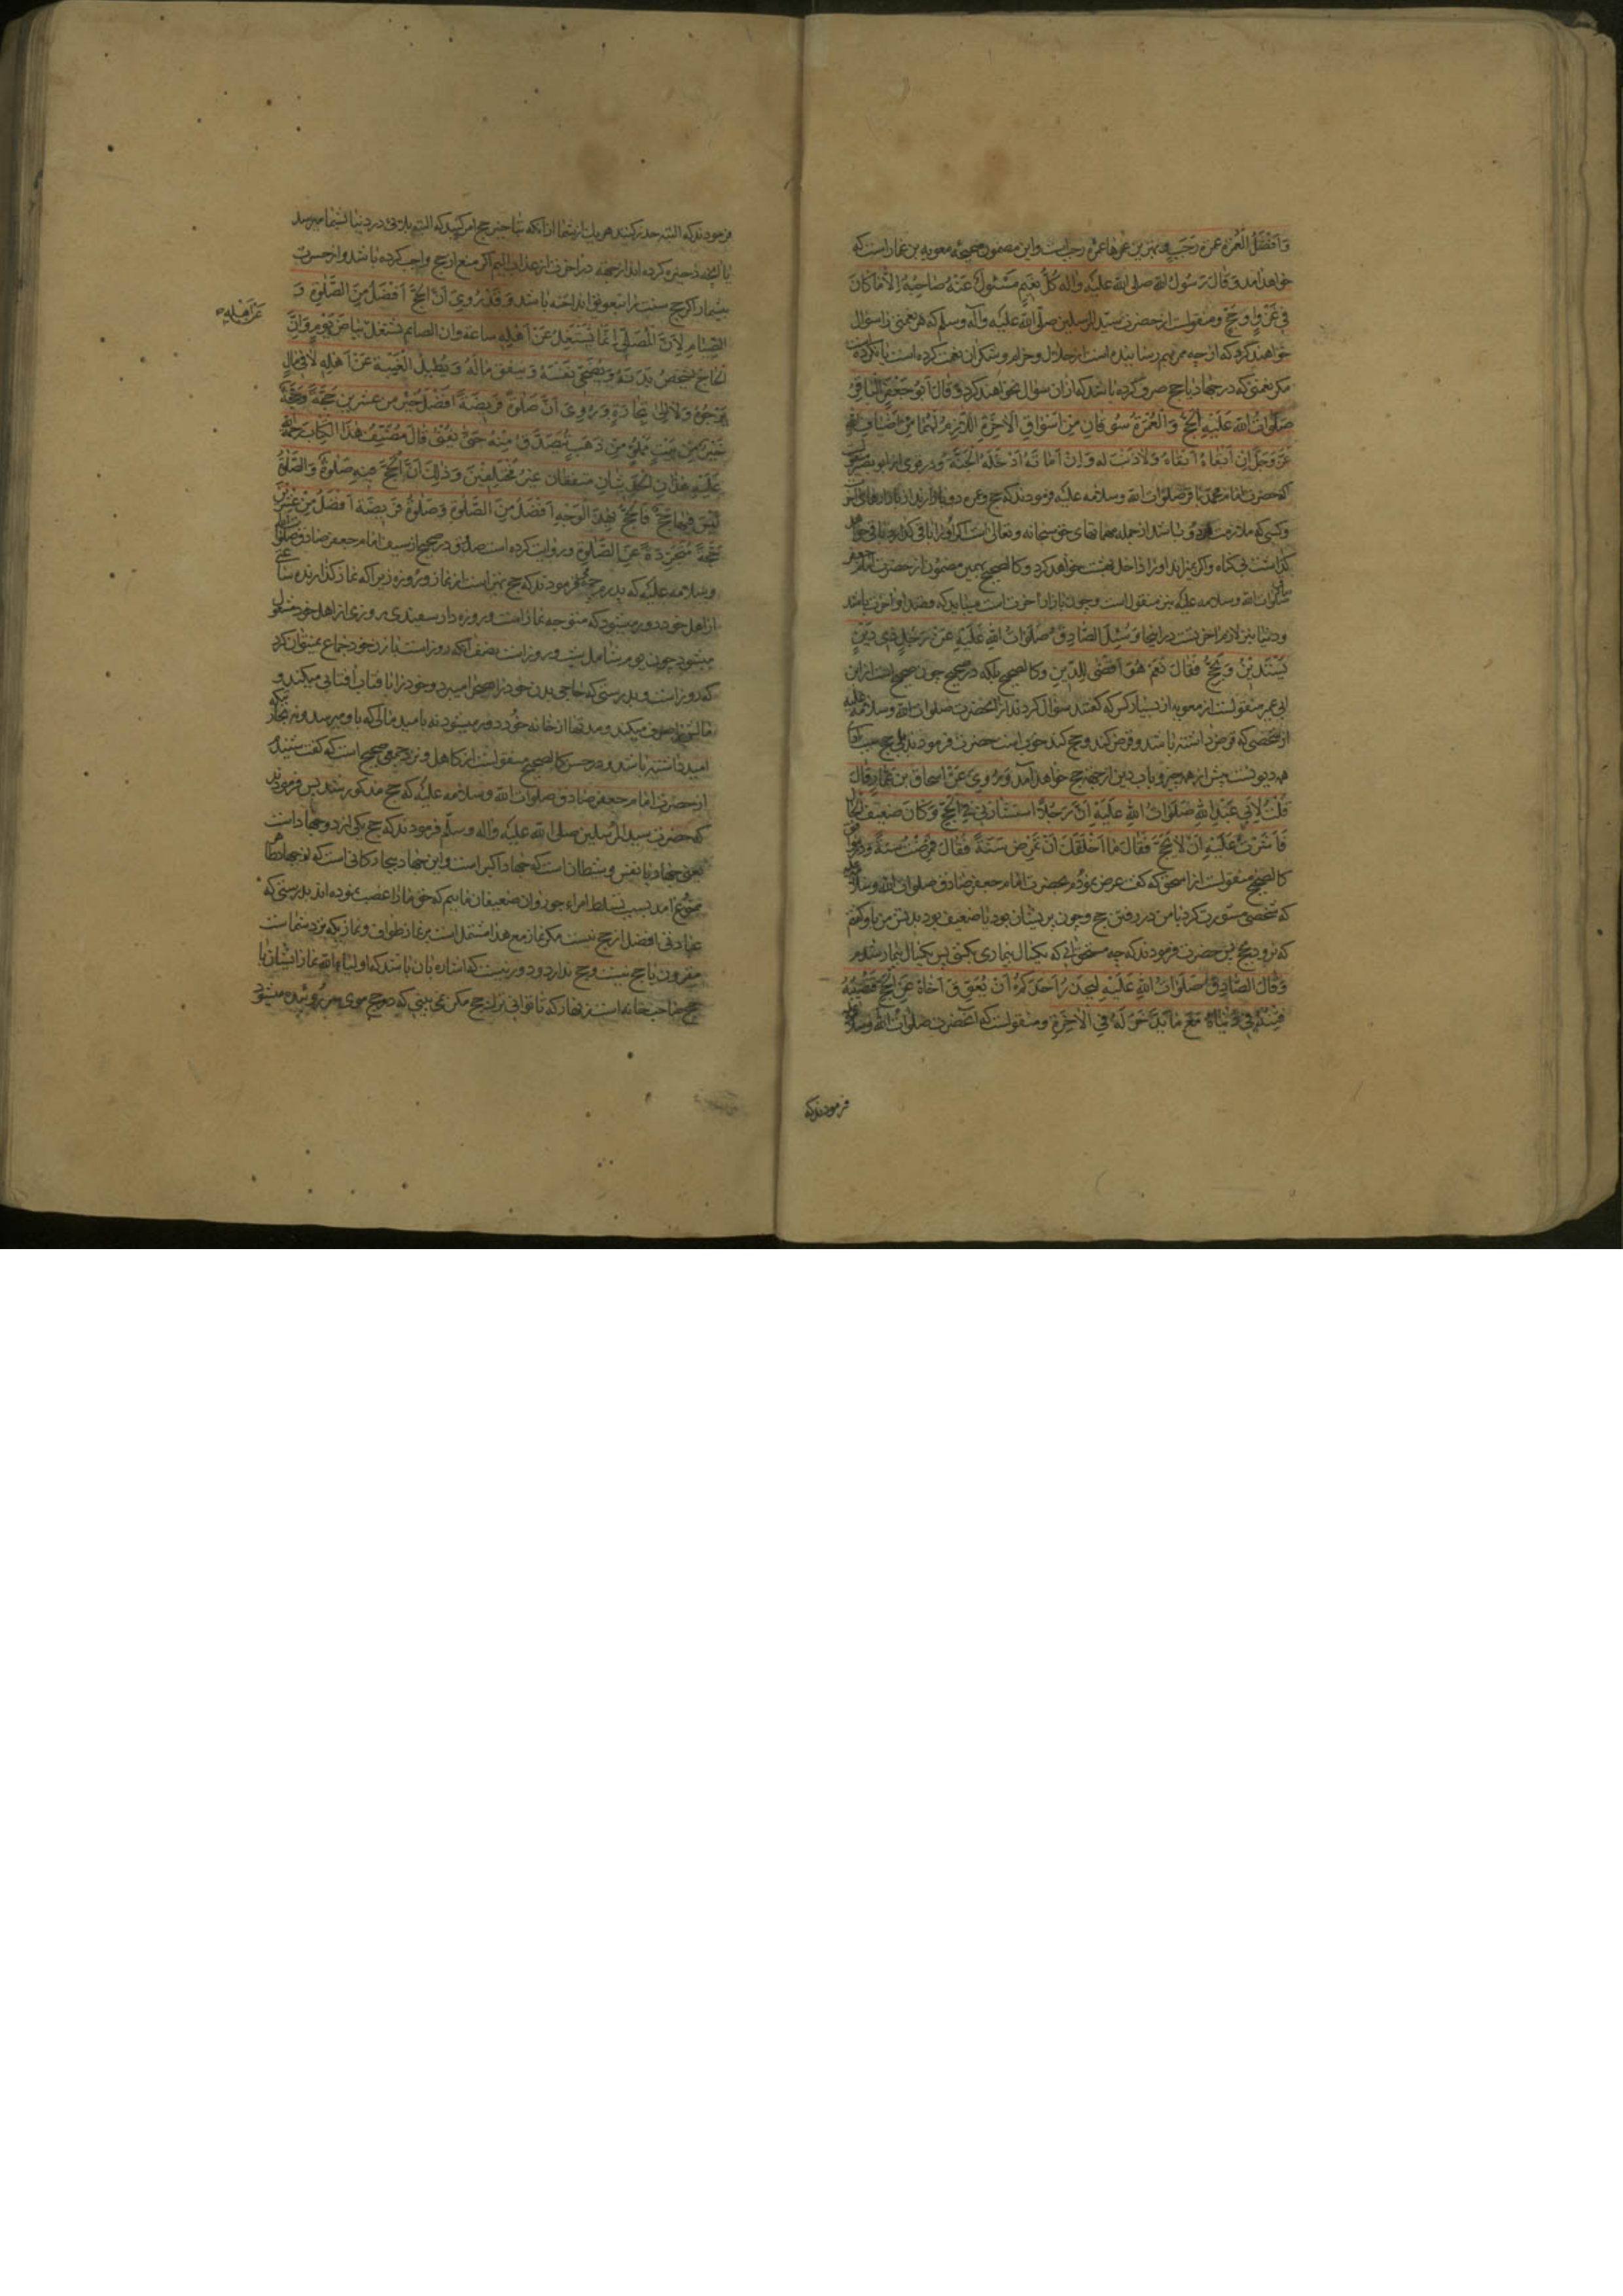 وَاَفْضَلُ الْعُمْرَةِ عُمْرَةُ رَجَبٍ و بهترین عمرها عمرهٔ رجبست و این مضمون صحیحهٔ معویه بن عمار است که
خواهد آمد وَقَالَ رَسُولُ اللهِ صلی الله علیه واله كُلُّ نَعِيمٍ مَسْئُولٌ عَنْهُ صَاحِبُهُ اِلَّا مَا كَانَ
فِي غَزْوٍ اَوْ حَجٍّ و منقولست از حضرت سیّد المرسلین صلّی الله علیه وآله وسلم که هر نعمتی را سؤال
خواهند کرد که از چه ممر بهم رسانیده است از حلال و حرام و شکر آن نعمت کرده است یا نکرده است
مکر نعمتی که در جهاد یا حج صرف کرده باشد که از ان سؤال نخواهند کرد وَقَالَ اَبُو جَعْفَرٍ الْبَاقِرُ
صَلَوَاتُ اللهِ عَلَيْهِ اَلْحَجُّ وَالْعُمْرَةُ سُوقَانِ مِنْ اَسْوَاقِ الْاٰخِرَةِ اَللَّازِمُ لَهُمَا مِنْ اَضْيَافِ اللهِ
عَزَّ وَجَلَّ اِنْ اَبْقَاهُ اَبْقَاهُ وَلَا ذَنْبَ لَهُ وَاِنْ اَمَاتَهُ اَدْخَلَهُ الْجَنَّةَ و در قوی از ابو بصیر
که حضرت امام محمد باقر صلوات الله وسلامه علیه فرمودند که حج و عمره دو بازارند از بازارهای آخرت
و کسی که ملازمت هر دو باشد از جمله مهمانهای حق سبحانه و تعالی است اکر او را باقی کذارد باقی خواهد
کذاشت بی کناه و اکر بمیراند او را داخل بهشت خواهد کرد و کالصحیح بهمین مضمون از حضرت امام جعفر
صلوات الله وسلامه علیه نیز منقول است و چون بازار آخرت است میباید که قصد او آخرت باشد
و دنیا نیز لازم آخرتست در اینجا وَسُئِلَ الصَّادِقُ صَلَوَاتُ اللهِ عَلَيْهِ عَنْ رَجُلٍ ذِي دَيْنٍ
يَسْتَدِيْنُ وَيَحُجُّ فَقَالَ نَعَمْ هُوَ اَقْضٰى لِلدَّيْنِ و کالصحیح بلکه در صحیح چون صحیح است از ابن
ابی عمیر منقولست از معویه از بسیار کس که کفتند سؤال کردند از آنحضرت صلوات الله وسلامه علیه
از شخصی که قرض داشته باشد و قرض کند و حج کند خوب است حضرت فرمودند بلی حج سبب
قُلْتُ لِاَبِي عَبْدِ اللهِ صَلَوَاتُ اللهِ عَلَيْهِ اِنَّ رَجُلًا اسْتَشَارَنِي فِي الْحَجِّ وَكَانَ ضَعِيفَ الْحَالِ
فَاَشَرْتُ عَلَيْهِ اَنْ لَا يَحُجَّ فَقَالَ مَا اَخْلَقَكَ اَنْ تَمْرَضَ سَنَةً فَقَالَ فَمَرِضْتُ سَنَةً
کالصحیح منقولست از اسحق که کفت عرض نمودم بحضرت امام جعفر صادق صلوات الله وسلامه علیه
که شخصی مشورت کرد با من در رفتن حج و چون پریشان بود یا ضعیف بود بدنش من باو کفتم
که نرود بحج پس حضرت فرمودند که چه مستحقی که یکسال بیماری بکشی پس یکسال بیمار شدم
وَقَالَ الصَّادِقُ صَلَوَاتُ اللهِ عَلَيْهِ لِيَحْذَرْ اَحَدُكُمْ اَنْ يُعَوِّقَ اَخَاهُ عَنِ الْحَجِّ فَتُصِيْبَهُ
فِتْنَةٌ فِي دُنْيَاهُ مَعَ مَا يُدَّخَرُ لَهُ فِي الْاٰخِرَةِ و منقولست که آنحضرت صلوات الله وسلامه علیه
فرمودند که
فرمودند که البته حذر کنید هر یك از شما از آنکه
یا آنچه ذخیره کرده اند از جهته در آخرت از عذاب الیم اکر منع از حج واجب کرده باشد و از حسرت
بیشمار اکر حج سنت را بتعویق انداخته باشد وَقَدْ رُوِيَ اَنَّ الْحَجَّ اَفْضَلُ مِنَ الصَّلٰوةِ وَ
الصِّيَامِ لِاَنَّ الْمُصَلِّيَ اِنَّمَا يَشْتَغِلُ عَنْ اَهْلِهِ سَاعَةً وَاِنَّ الصَّائِمَ يَشْتَغِلُ بَيَاضَ يَوْمٍ وَاِنَّ
عَنْ اَهْلِهِ
اَلْحَاجَّ يُشْخِصُ بَدَنَهُ وَيُضْحِي نَفْسَهُ وَيُنْفِقُ مَالَهُ وَيُطِيلُ الْغَيْبَةَ عَنْ اَهْلِهِ لَا فِي مَالٍ
يَرْجُوهُ وَلَا اِلٰى تِجَارَةٍ وَرُوِيَ اَنَّ صَلٰوةً فَرِيضَةً اَفْضَلُ مِنْ عِشْرِينَ حَجَّةً وَحَجَّةً
خَيْرٌ مِنْ بَيْتٍ مَمْلُوٍّ مِنْ ذَهَبٍ يُتَصَدَّقُ مِنْهُ حَتّٰى يَفْنٰى قَالَ مُصَنِّفُ هٰذَا الْكِتَابِ رَحْمَةُ اللهِ
عَلَيْهِ هٰذَانِ الْحَدِيثَانِ مُتَّفِقَانِ غَيْرُ مُخْتَلِفَيْنِ وَذٰلِكَ اَنَّ الْحَجَّ فِيهِ صَلٰوةٌ وَالصَّلٰوةُ
لَيْسَ فِيهَا حَجٌّ فَالْحَجُّ بِهٰذَا الْوَجْهِ اَفْضَلُ مِنَ الصَّلٰوةِ وَصَلٰوةٌ فَرِيضَةٌ اَفْضَلُ مِنْ عِشْرِيْنَ
حَجَّةً مُتَجَرِّدَةً عَنِ الصَّلٰوةِ و روایت کرده است صدوق در صحیح از سیف امام جعفر صادق صلوات الله
وسلامه علیه که پدرم فرمودند که حج بهتر است از نماز و روزه زیرا که نماز کذارنده ساعتی
از اهل خود دور میشود که متوجه نماز است و روزه دار سفیدی روزی از اهل خود مشغول
میشود چون یوم شامل شب و روز است نصف آنکه روز است با زن خود جماع نمیتوان کرد
که روز است و بدرستی که حاجی بدن خود را میبرد و خود را بآفتاب آفتابی میکند و
مالش را صرف میکند و مدتها از خانه خود دور میشود نه بامید مالی که باو میرسد و نه تجارتی که
امید داشته باشد و در حسن کالصحیح منقولست از کاهلی و نزد جمعی صحیح است که کفت شنیدم
از حضرت امام جعفر صادق صلوات الله وسلامه علیه که حج مذکور شد پس فرمودند
که حضرت سید المرسلین صلی الله علیه واله وسلّم فرمودند که حج یکی از دو جهاد است
یعنی جهاد با نفس و شیطان است که جهاد اکبر است و این جهاد بجای
ممنوع آمد بسبب تسلط امراء جور و آن ضعیفان ماییم که حق ما را غصب نموده اند بدرستی که
عبادتی افضل از حج نیست مکر نماز مع هذا مشتمل است بر نماز طواف و نمازیکه نزد شماست
مقرون با حج نیست و حج ندارد و دور نیست که اشاره بآن باشد که اولیاء الله نماز ایشان با
حج صاحب خانه است زنهار که تا توانی ترك حج مکن نمی بینی که در حج موی سر ژولیده میشود